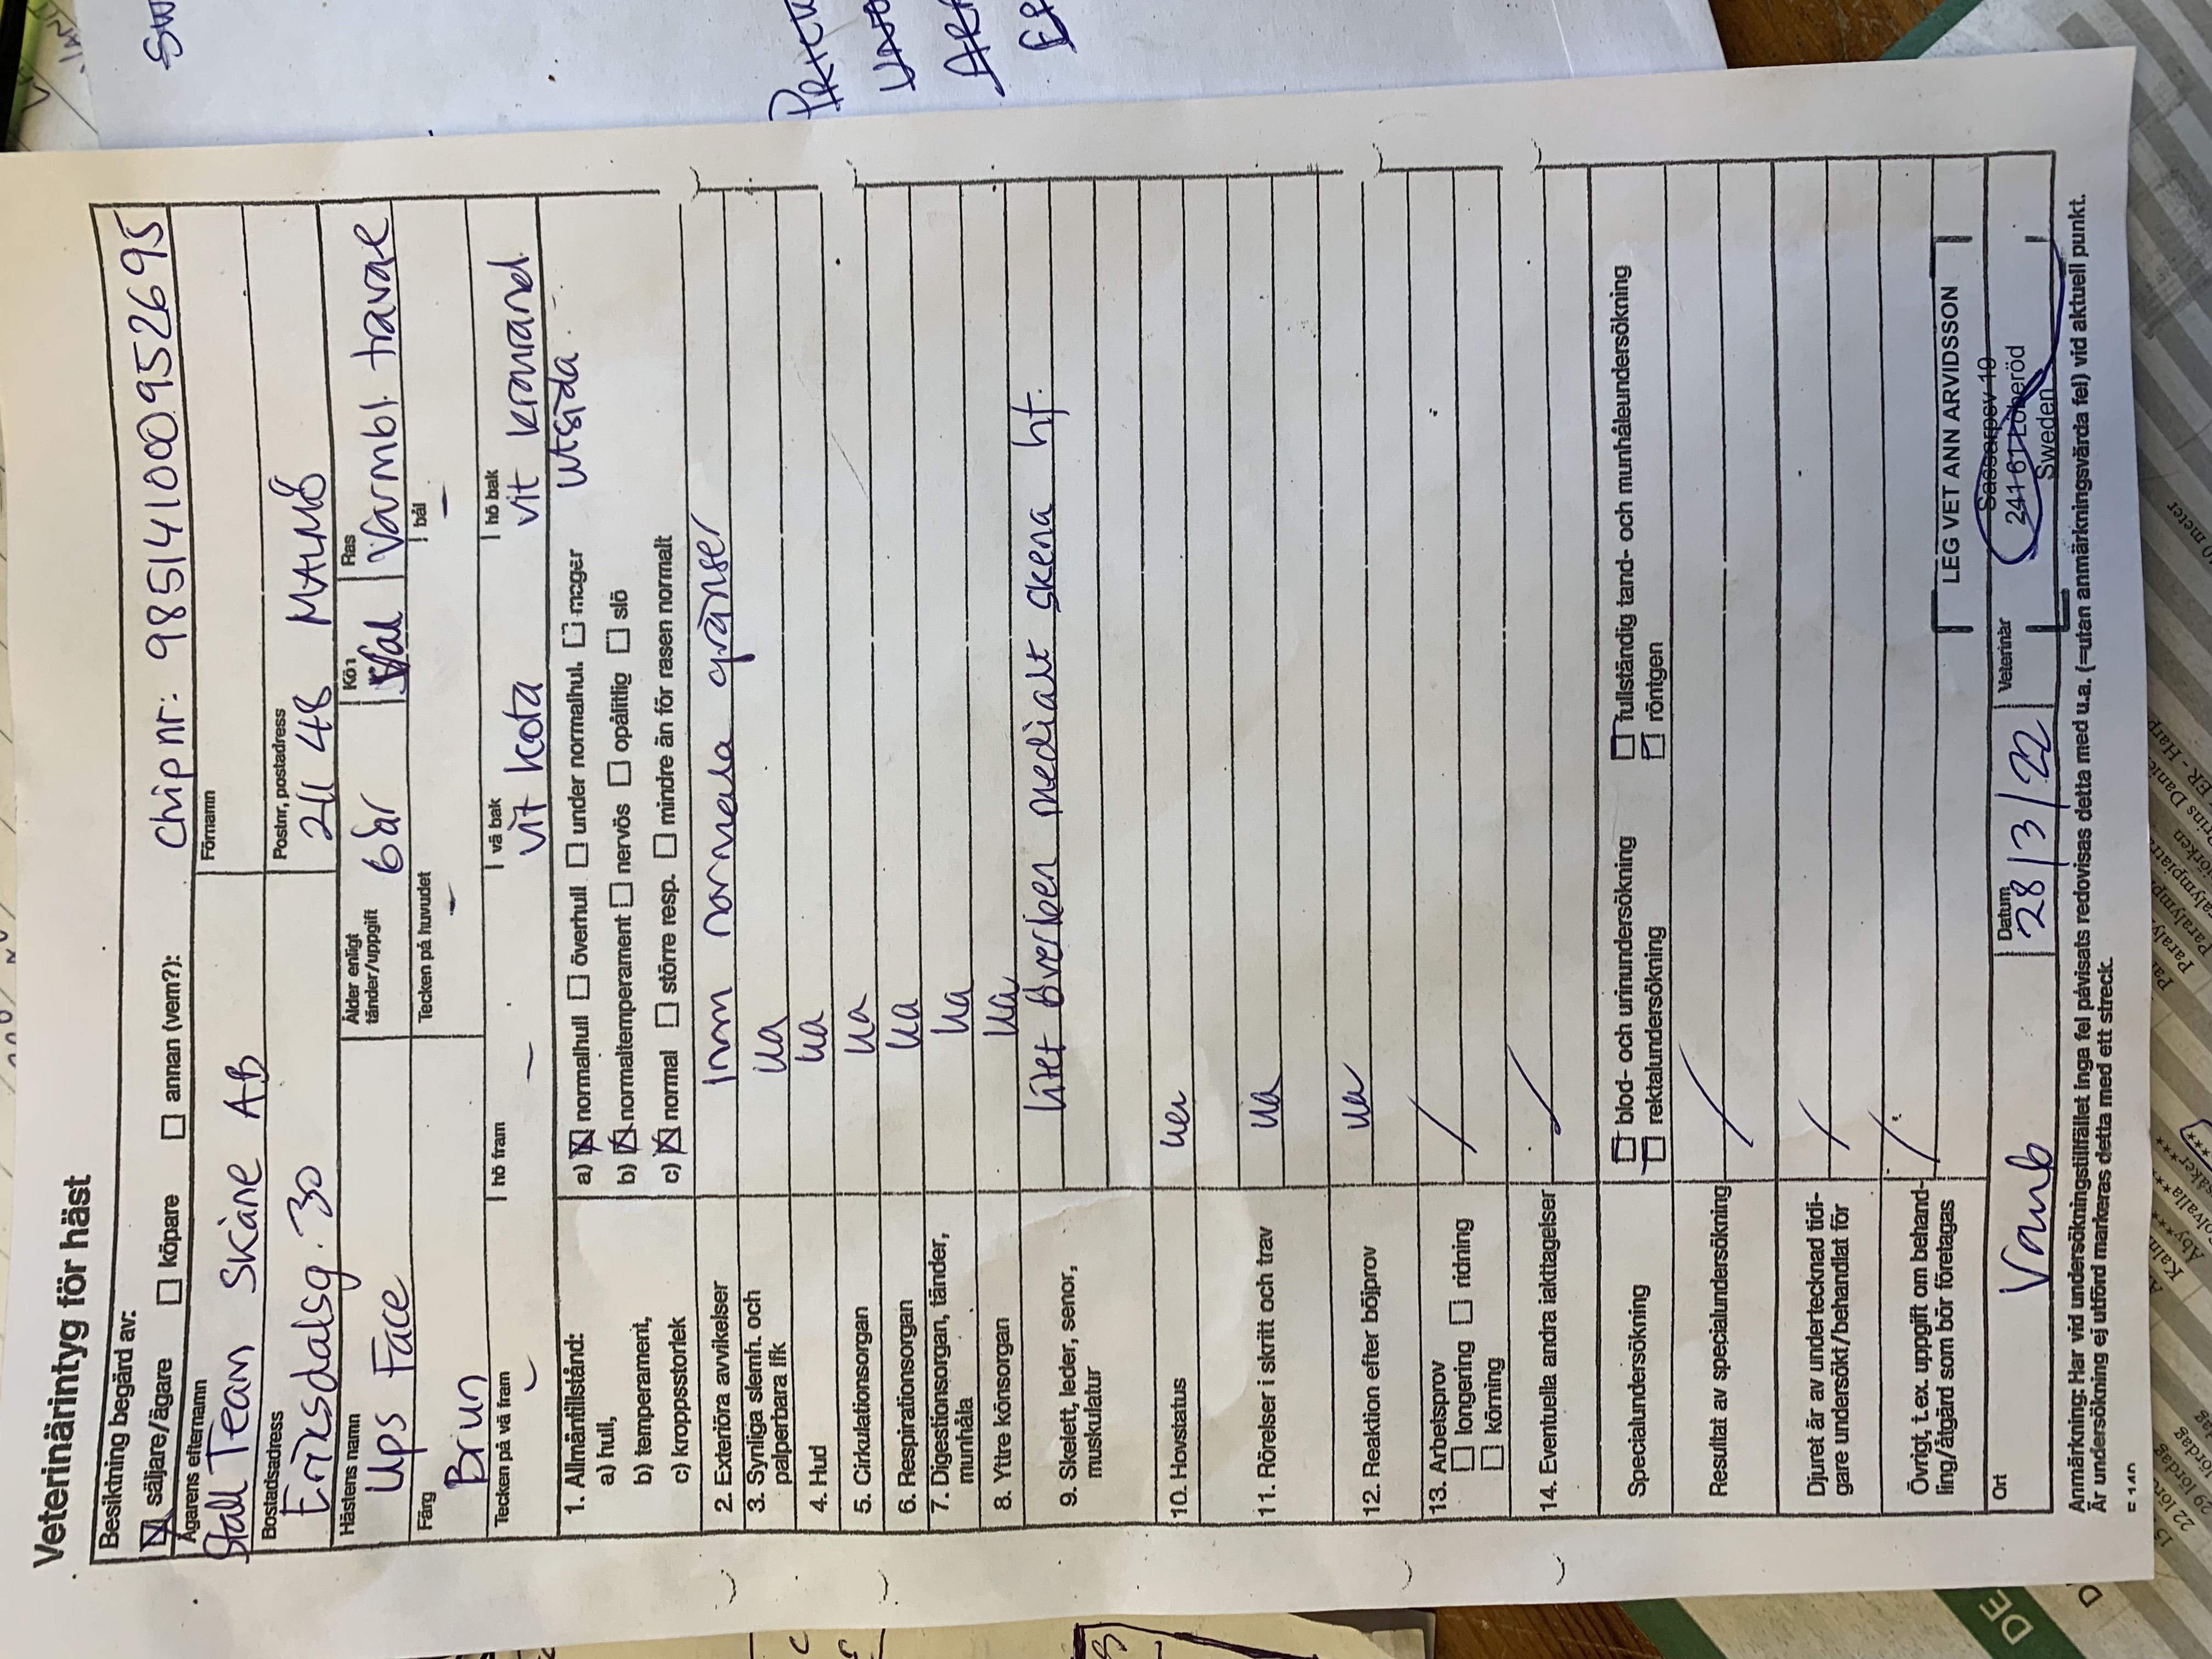 Veterinärintyg för häst
Besiktning begärd av:
säljare/ägare köpare annan (vem?): Chip nr: 985141000952695
Ägarens efternamn Förnamn
Stall Team Skåne AB
Bostadsadress Postnr, postadress
Eriksdalsg. 30 211 48 MALMÖ
Hästens namn Ålder enligt tänder/uppgift Kön Ras
Ups Face 6 år Val Varmbl. travare
Färg Tecken på huvudet bål
Brun - -
Tecken på vä fram hö fram vä bak hö bak
- - vit kota vit kronrand utsida
1. Allmäntillstånd:
a) hull,
b) temperament,
c) kroppsstorlek
a) normalhull överhull under normalhul. mager
b) normaltemperament nervös opålitlig slö
c) normal större resp. mindre än för rasen normalt
2. Exteriöra avvikelser inom normala gränser
3. Synliga slemh. och ua
palperbara lfk
4. Hud ua
5. Cirkulationsorgan ua
6. Respirationsorgan ua
7. Digestionsorgan, tänder, ua
munhåla
8. Yttre könsorgan ua
9. Skelett, leder, senor, litet överben medialt skena hf.
muskulatur
10. Hovstatus ua
11. Rörelser i skritt och trav ua
12. Reaktion efter böjprov ua
13. Arbetsprov
longering ridning
körning
14. Eventuella andra iakttagelser
Specialundersökning
blod- och urinundersökning fullständig tand- och munhåleundersökning
rektalundersökning röntgen
Resultat av specialundersökning
Djuret är av undertecknad tidi-
gare undersökt/behandlat för
Övrigt, t.ex. uppgift om behand-
ling/åtgärd som bör företagas
Ort Datum Veterinär
Vomb 28/3/22
LEG VET ANN ARVIDSSON
241 61 Löberöd
Sweden
Anmärkning: Har vid undersökningstillfället inga fel påvisats redovisas detta med u.a. (=utan anmärkningsvärda fel) vid aktuell punkt.
Är undersökning ej utförd markeras detta med ett streck.